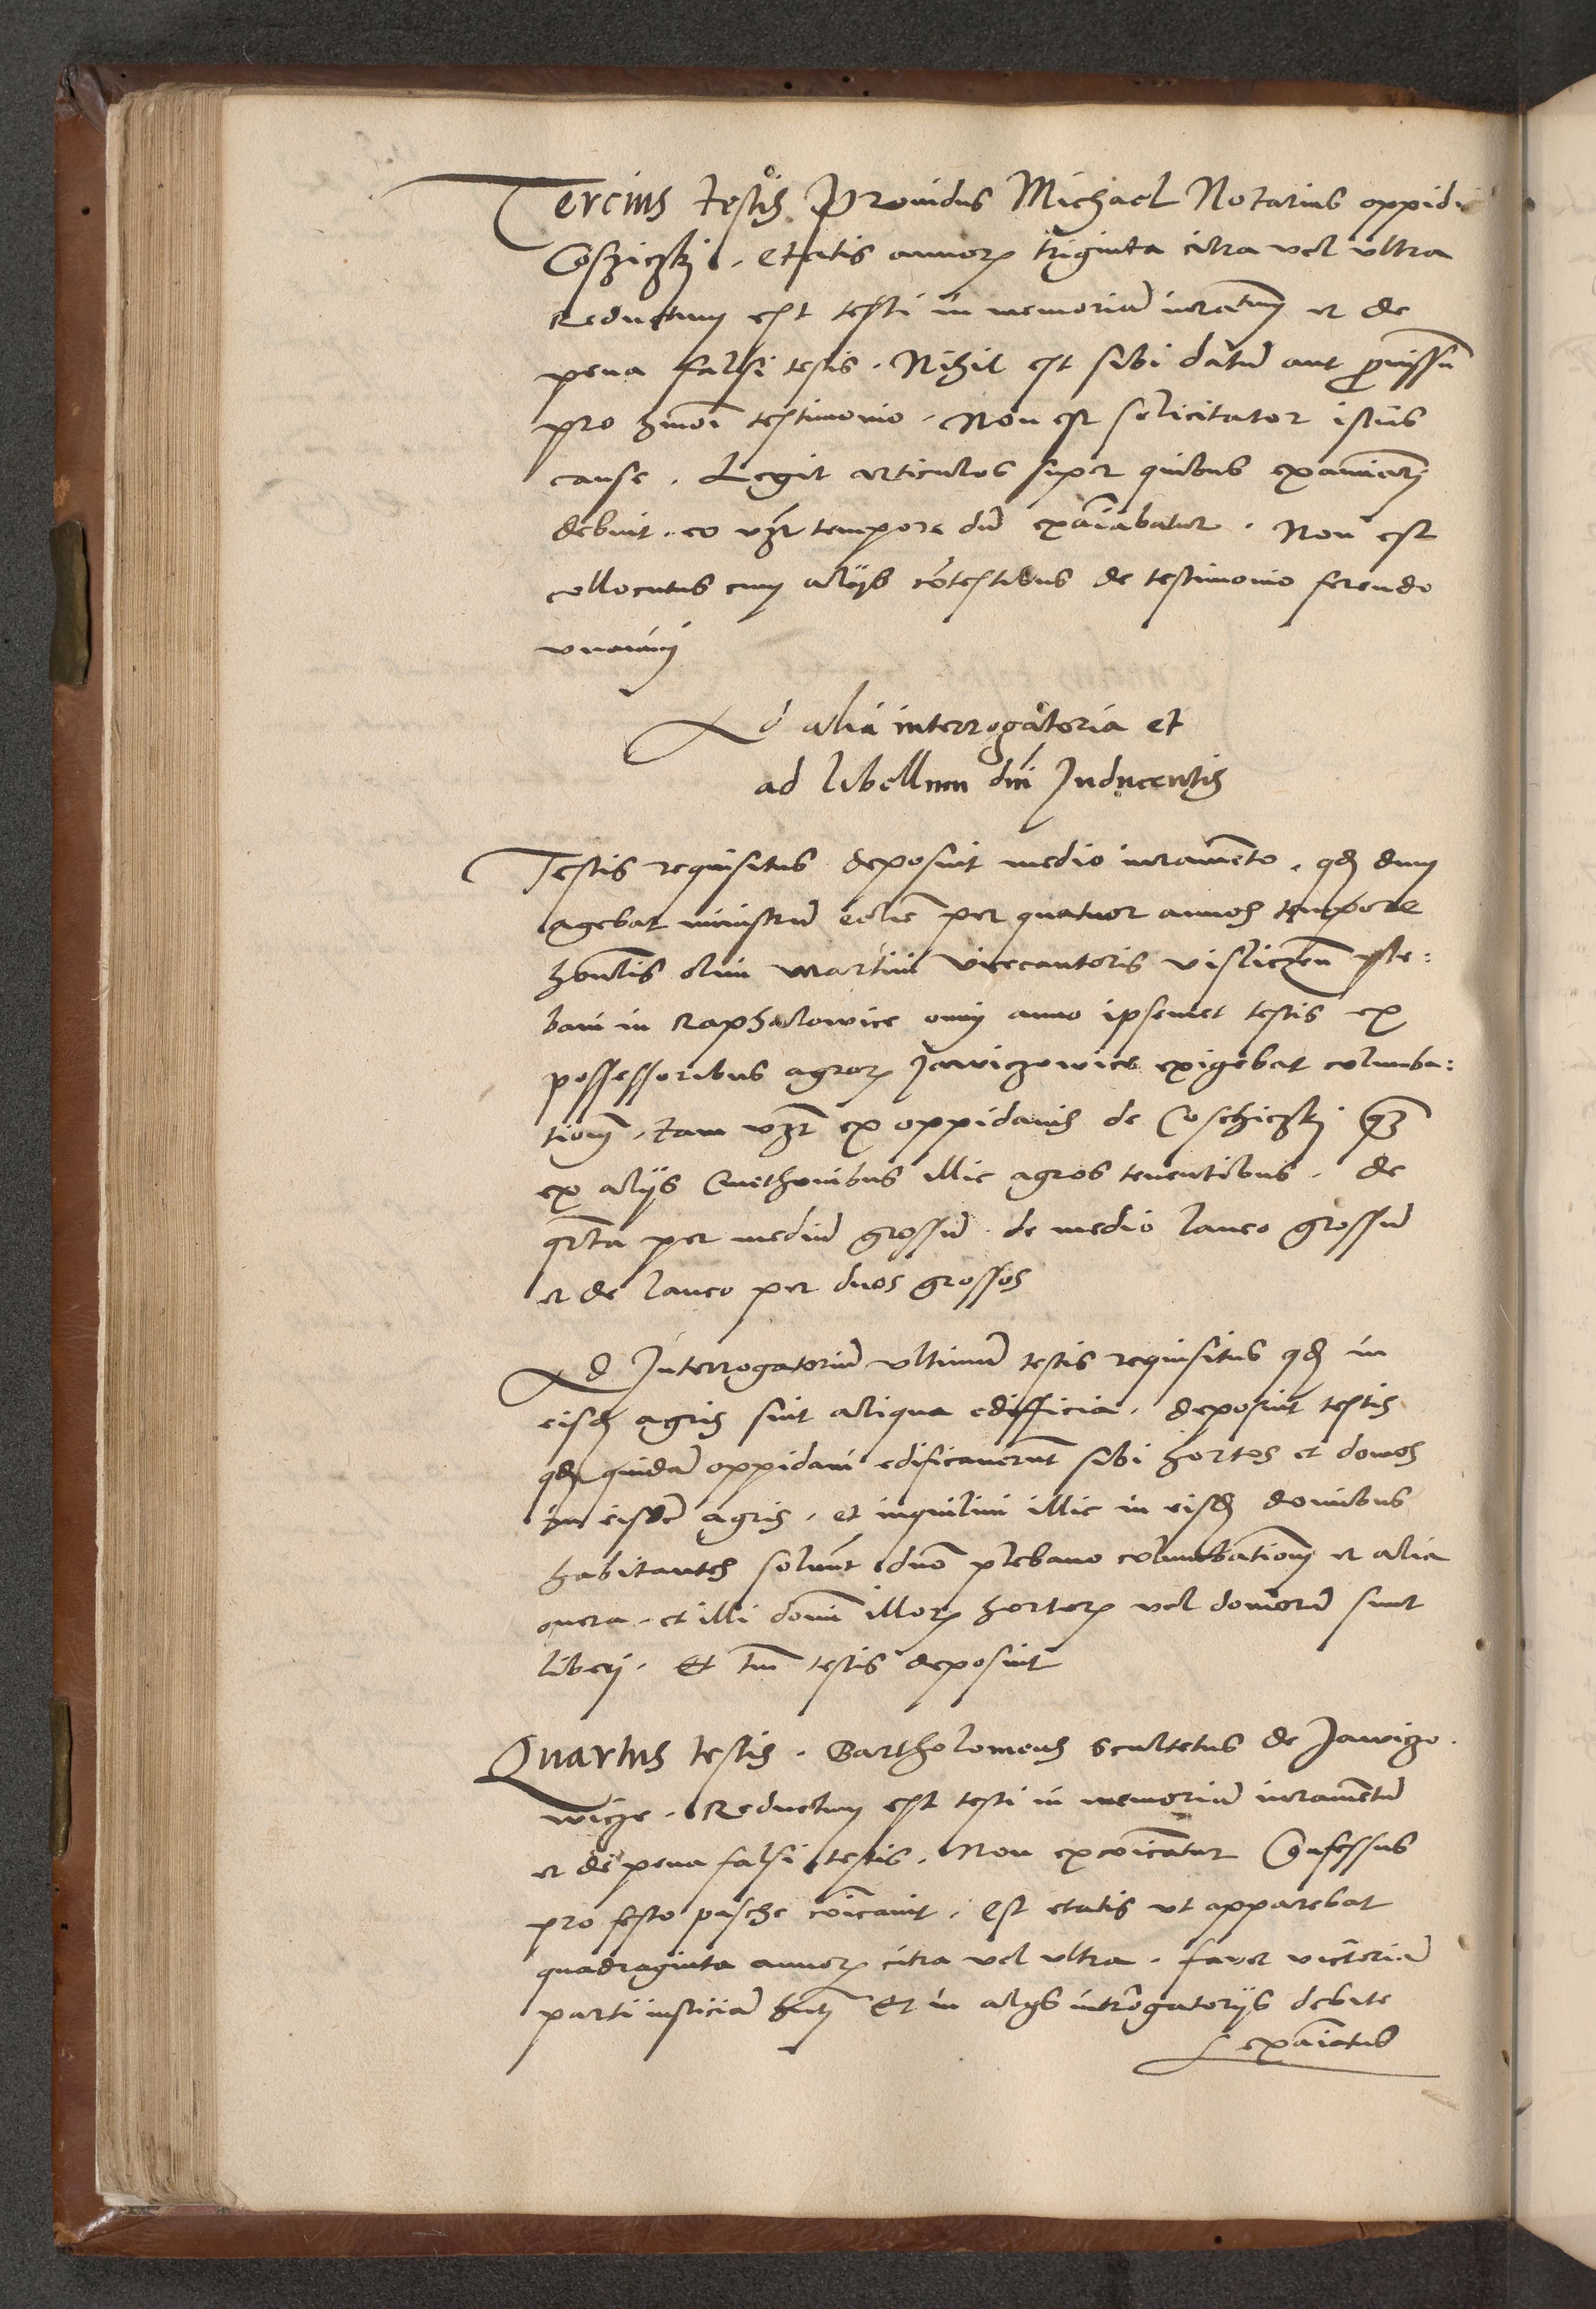 Tercius testis Prouidus Michael Notarius oppidi
Cosziczki . etatis annorꝫ triginta citra vel vltra
Reductum est testi in memoriã iuramtum et de
pena falsi testis . Nihil est sibi datũ aut ꝓmissũ
pro hmoi testimonio . Non est solicitator istius
cause . Legit articulos super quibus examinari
debuit . eo vʒt tempore dũ exãiabatur . Non est
collocutus cum alijs cõtestibus de testimonio ferendo
vnanimi
Ad alia interrogatoria et
ad libellum dñi Inducentis
Testis requisitus deposuit medio iuramẽto . qđ dum
agebat ministrũ eclie per quatuor annos tempore
honlis olim Martini vicecantoris vislicien ple:
bani in Raphalowice omni anno ipsemet testis ex
possessoribus agrorꝫ Jawiczowice exigebat columba:
tionem . tam vʒt ex oppidanis de Coschiczki qꝫ
ex alijs Cmethonibus illic agros tenentibus . de
qrta per mediũ grossũ . de medio laneo grossũ
et de laneo per duos grossos
Ad Interrogatoriũ vltimũ testis requisitus qđ in
eisđ agris sint aliqua edifficia . deposuit testis
qđ quidã oppidani edificauerunt sibi hortos et domos
in eisdẽ agris . et inquilini illic in eisđ domibus
habitantes soluunt dno plebano columbationem et alia
onera . et illi domini illorꝫ hortorꝫ vel domorũ sunt
liberi . Et tm testis deposuit
Quartus testis . Bartholomeus scultetus de Jawiczo.
wicze . Reductum est testi in memoriã iuramẽtũ
et de pena falsi testis . Non excõicatur Confessus
pro festo pasche cõicauit . est etatis vt apparebat
quadraginta annorꝫ citra vel vltra . fauet victoriã
parti iusticiã hnti Et in alijs intrrogatorijs debite
exãiatus